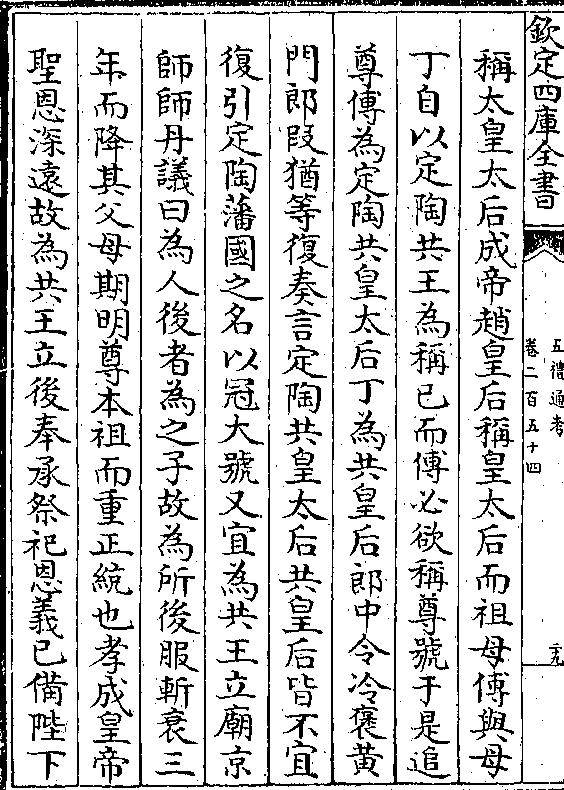 欽定四庫全書
五禮通考
卷二百五十四
稱太皇太后成帝趙皇后稱皇太后而祖母傅與母
丁自以定陶共王為稱已而傅必欲稱尊號于是追
尊傅為定陶共皇太后丁為共皇后郎中令冷褒黄
門郎段猶等復奏言定陶共皇太后共皇后皆不宜
復引定陶藩國之名以冠大號又宜為共王立廟京
師師丹議曰為人後者為之子故為所後服斬衰三
年而降其父母期明尊本祖而重正統也孝成皇帝
聖恩深遠故為共王立後奉承祭祀恩義已備陛下